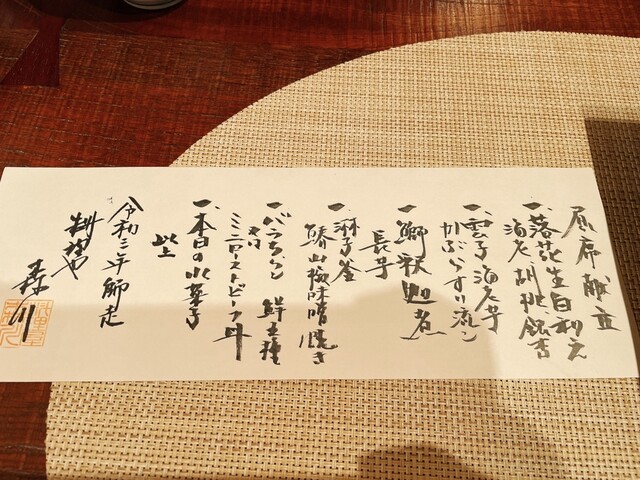 昼席献立
一、落花生白和え
海老 胡桃 銀杏
一、雲子 海老芋
かぶらすり流し
一、鰤釈迦煮
長芋
一、柚子釜
鰆山椒味噌焼き
一、バラちらし 鮮魚種
又は
ミニローストビーフ丼
一、本日の水菓子
以上
令和三年師走
料理や
森川